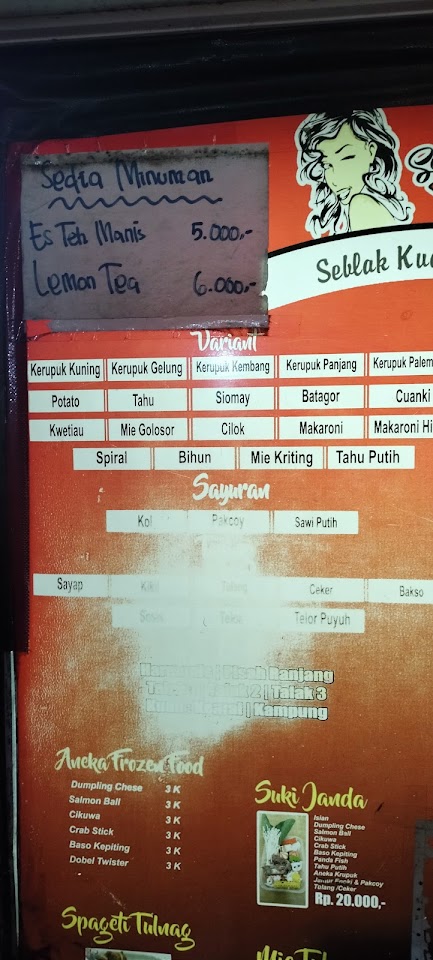 Sedia Minuman
Es Teh Manis 5.000,-
Lemon Tea 6.000,-
Seblak
Variant
Kerupuk Kuning Kerupuk Gelung Kerupuk Kembang Kerupuk Panjang Kerupuk Palem
Potato Tahu Siomay Batagor Cuanki
Kwetiau Mie Golosor Cilok Makaroni Makaroni
Spiral Bihun Mie Kriting Tahu Putih
Sayuran
Kol Pakcoy Sawi Putih
Sayap Kikil Tulang Ceker Bakso
Sosis Telor Telor Puyuh
Pisah Ranjang
Talak 2 | Talak 3
Kampung
Aneka Frozen Food
Dumpling Chese 3 K
Salmon Ball 3 K
Cikuwa 3 K
Crab Stick 3 K
Baso Kepiting 3 K
Dobel Twister 3 K
Suki Janda
Isian
Dumpling Chese
Salmon Ball
Cikuwa
Crab Stick
Baso Kepiting
Panda Fish
Tahu Putih
Aneka Krupuk
Jamur Enoki & Pakcoy
Tulang /Ceker
Rp. 20.000,-
Spageti Tulnag